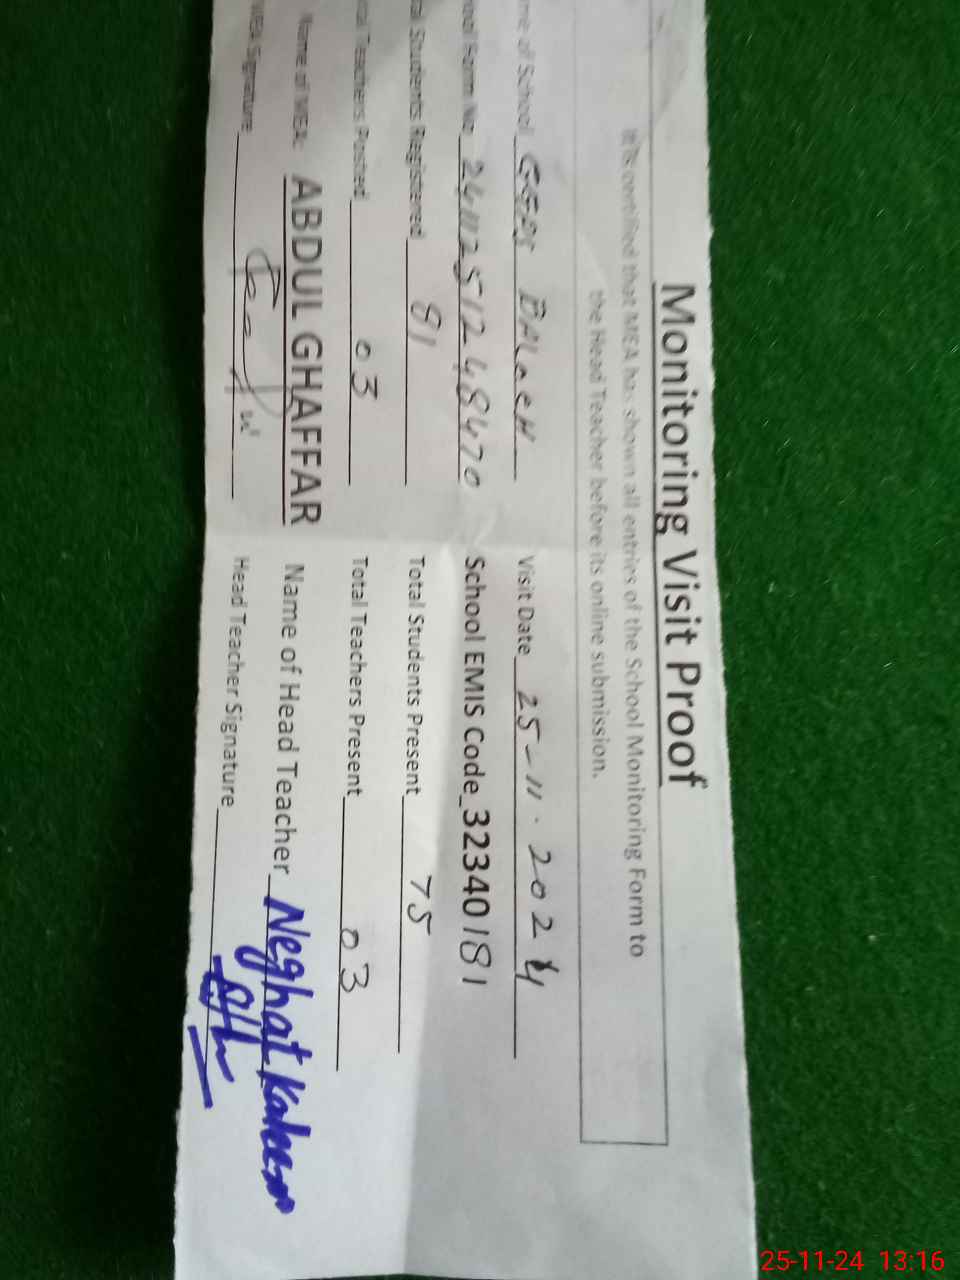 Monitoring Visit Proof
It is certified that MEA has shown all entries of the School Monitoring Form to
the Head Teacher before its online submission.
me of School GGPS BALOCH Visit Date 25-11-2024
ool Form No 2411251248470 School EMIS Code 32340181
tal Students Registered 81 Total Students Present 75
tal Teachers Posted 03 Total Teachers Present 03
Name of MEA: ABDUL GHAFFAR Name of Head Teacher Neghat Kaleem
MEA Signature Head Teacher Signature
25-11-24 13:16